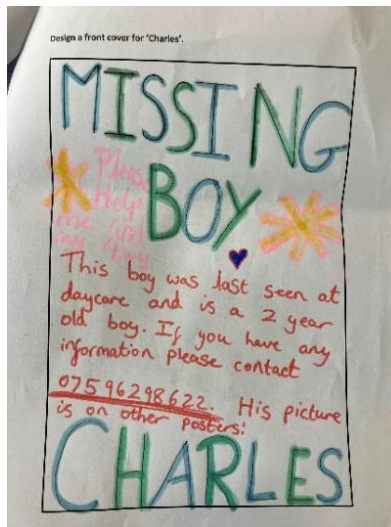 Design a front cover for 'Charles'.
MISSING
BOY
Please
Help
me find
my boy
This boy was last seen at
daycare and is a 2 year
old boy. If you have any
information please contact
07596298622. His picture
is on other posters!
CHARLES